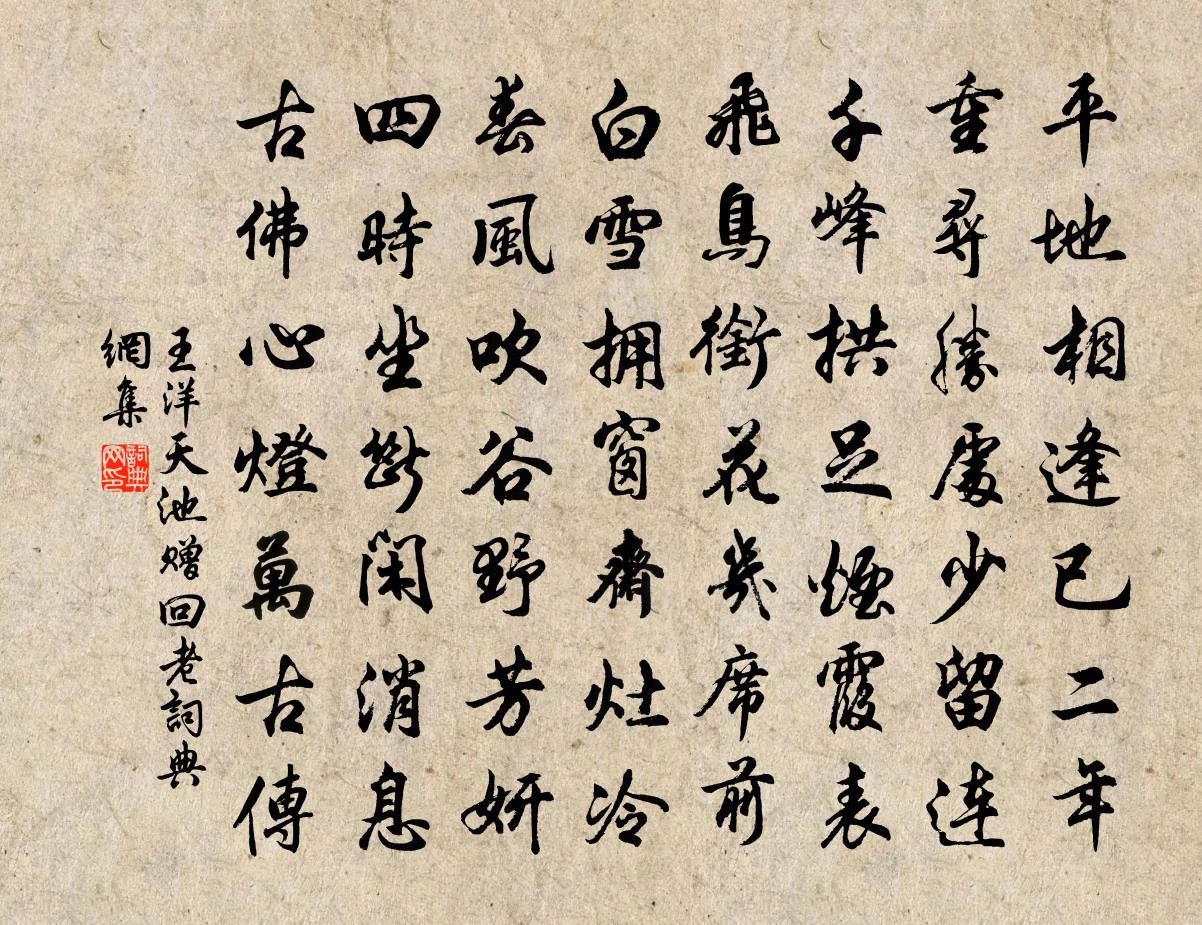 平地相逢已二年
重尋勝處少留連
千峰拱足煙霞表
飛鳥銜花几席前
白雪拥窗齋灶冷
春風吹谷野芳妍
四時坐斷閑消息
古佛心燈萬古傳
王洋天池贈回老詞典
網集
詞典
网印